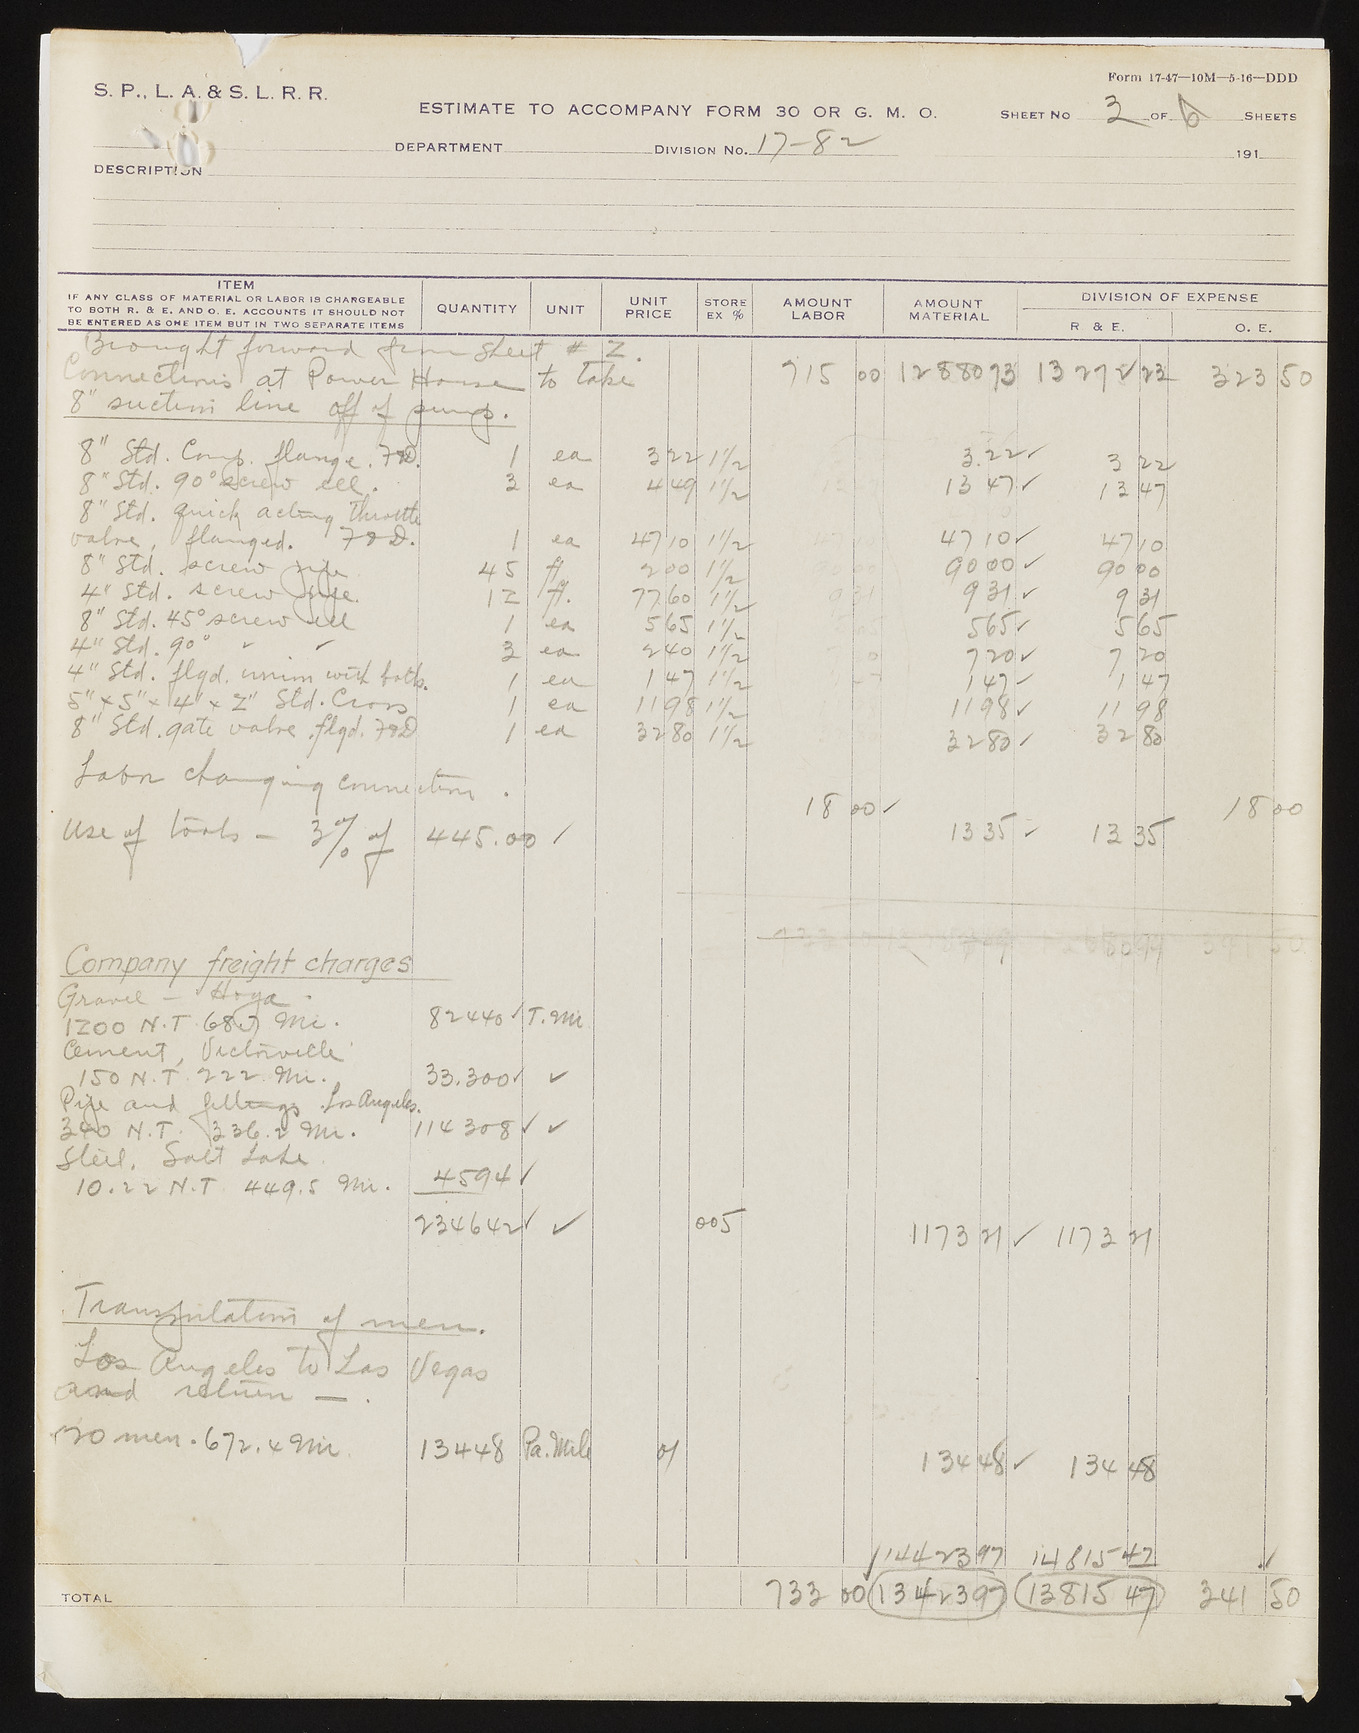 Form 17-47—10M—5-16—DDD
S. P., L. A. & S. L. R. R.
ESTIMATE TO ACCOMPANY FORM 30 OR G. M. O. SHEET No 3 OF 6 SHEETS
DEPARTMENT DIVISION No. 17-82 191
DESCRIPTION
ITEM
IF ANY CLASS OF MATERIAL OR LABOR IS CHARGEABLE
TO BOTH R. & E. AND O. E. ACCOUNTS IT SHOULD NOT
BE ENTERED AS ONE ITEM BUT IN TWO SEPARATE ITEMS
QUANTITY UNIT UNIT PRICE STORE EX % AMOUNT LABOR AMOUNT MATERIAL DIVISION OF EXPENSE
R & E. O. E.
Brought forward from Sheet # 2.
Connections at Power House to take 715 00 12880 73 13272 23 323 50
8" suction line off of pump.
8" Std. Comp. flange. F&D. 1 ea 3 22 1½ 3.22 ✓ 3 22
8" Std. 90° screw ell. 3 ea 4 49 1½ 13 47 ✓ 13 47
8" Std. quick acting Throttle
valve, flanged. F&D. 1 ea 47 10 1½ 47 10 ✓ 47 10
8" Std. screw pipe 45 ft 2 00 1½ 90 00 ✓ 90 00
4" Std. screw pipe. 12 ft. 77 60 1½ 9 31 ✓ 9 31
8" Std. 45° screw ell 1 ea 5 65 1½ 5 65 ✓ 5 65
4" Std. 90° " " 3 ea 2 40 1½ 7 20 ✓ 7 20
4" Std. flgd. union with bolts. 1 ea 1 47 1½ 1 47 ✓ 1 47
5" x 5" x 4" x 2" Std. Cross 1 ea 11 98 1½ 11 98 ✓ 11 98
8" Std. gate valve .flgd. F&D 1 ea 32 80 1½ 32 80 ✓ 32 80
Labor changing connections . 18 00 ✓ 18 00
Use of tools — 3% of 445.00 ✓ 13 35 ✓ 13 35
Company freight charges
Gravel — Hoya.
1200 N.T. 68.7 Mi. 82440 ✓ T. Mi
Cement, Victorville
150 N.T. 222 Mi. 33.300 ✓ ✓
Pipe and fittings . Los Angeles.
340 N.T. 336.2 Mi. 114308 ✓ ✓
Steel, Salt Lake
10.22 N.T. 449.5 Mi. 4594 ✓
234642 ✓ ✓ 005 1173 21 ✓ 1173 21
Transportation of men.
Los Angeles to Las Vegas
and return — .
20 men. 672.4 Mi 13448 Pa. Mile 01 134 48 ✓ 134 48
14423 97 14815 47 ✓
TOTAL 733 00 13423 97 13815 47 341 50